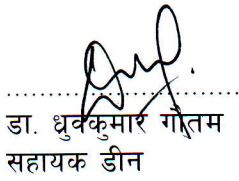 डा. ध्रुवकुमार गौतम
सहायक डीन